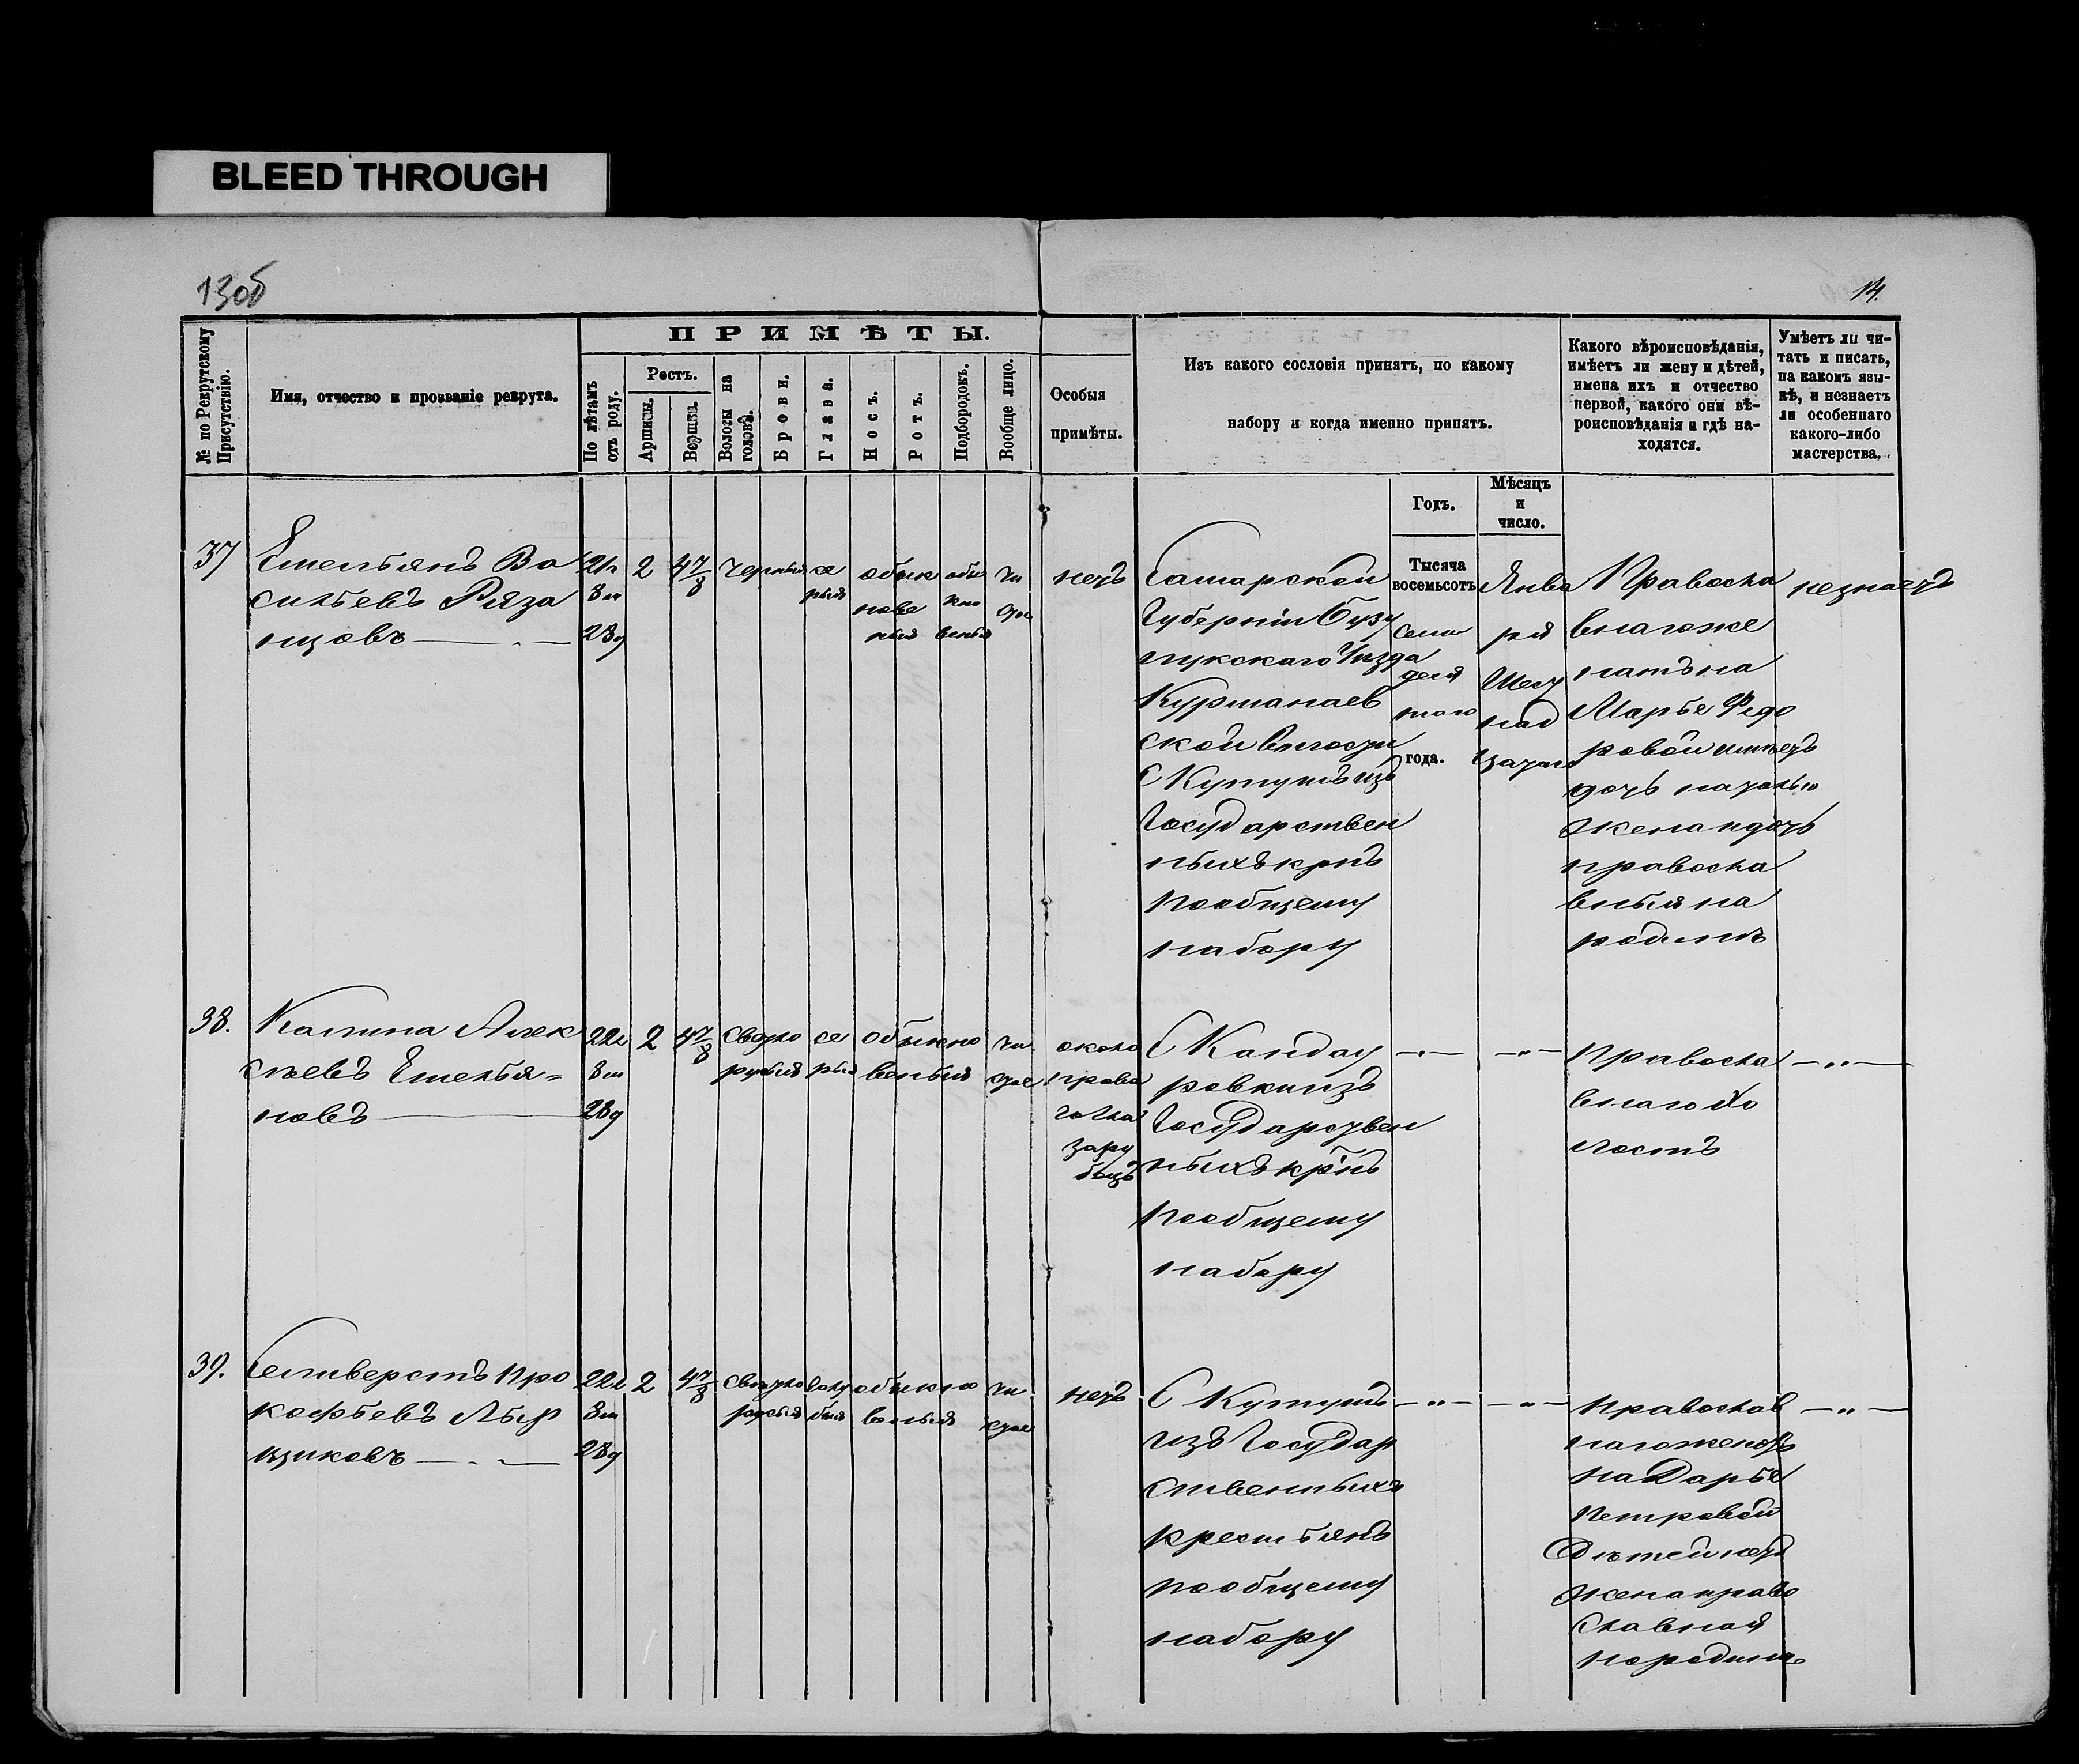 BLEED THROUGH
13об
14.
№ по Рекрутскому Присутствію.
Имя, отчество и прозваніе рекрута.
ПРИМѢТЫ.
По лѣтамъ отъ роду.
Ростъ.
Аршины.
Вершки.
Волосы на головѣ.
Брови.
Глаза.
Носъ.
Ротъ.
Подбородокъ.
Вообще лицо.
Особыя
примѣты.
Изъ какого сословія принятъ, по какому
набору и когда именно принятъ.
Годъ.
Мѣсяцъ
и
число.
Какого вѣроисповѣданія,
имѣетъ ли жену и дѣтей,
имена ихъ и отчество
первой, какого они вѣ-
роисповѣданія и гдѣ на-
ходятся.
Умѣетъ ли чи-
тать и писать,
на какомъ язы-
кѣ, и незнаетъ
ли особеннаго
какого-либо
мастерства.
37
Емельянъ Ва
сильевъ Ряза
нцовъ
21л
8м
28д
2
4 7/8
черныя
се
рыя
обык
нове
ныя
обы
кно
веный
чи
стое
нетъ
Самарской
Губерніи Бузу
лукскаго Уѣзда
Курманаев
ской волости
С Кутушъ изъ
Государствен
ныхъ крнъ
пообщему
набору
Тысяча
восемьсотъ
семи
деся
таго
года.
Янва
ря
Шест
над
цатаго
Православ
внагоже
натъ на
Марье Федо
ровой имѣетъ
дочь наталью
жена идочь
правосла
вныя на
родинѣ
незнаетъ
38.
Калина Алек
сѣевъ Емелья=
новъ
22л
8м
28д
2
4 7/8
светло
русыя
се
рыя
обыкно
веныя
чи
стое
около
права
го глаза
рубецъ
С Кандау
ровки изъ
Государствен
ныхъ крнъ
пообщему
набору
—"—
—"—
Правосла
внаго Хо
лостъ
—"—
39.
Селиверстъ Про
кофьевъ Лыр
щиковъ
22л
8м
28д
2
4 7/8
светло
русыя
голу
быя
обыкно
веныя
чи
стое
нетъ
С Кутушъ
изъ Государ
ственныхъ
крестьянъ
пообщему
набору
—"—
—"—
Православ
нагоженатъ
на Дарье
Петровой
Дѣтей нетъ
жена право
славная
народинѣ
—"—